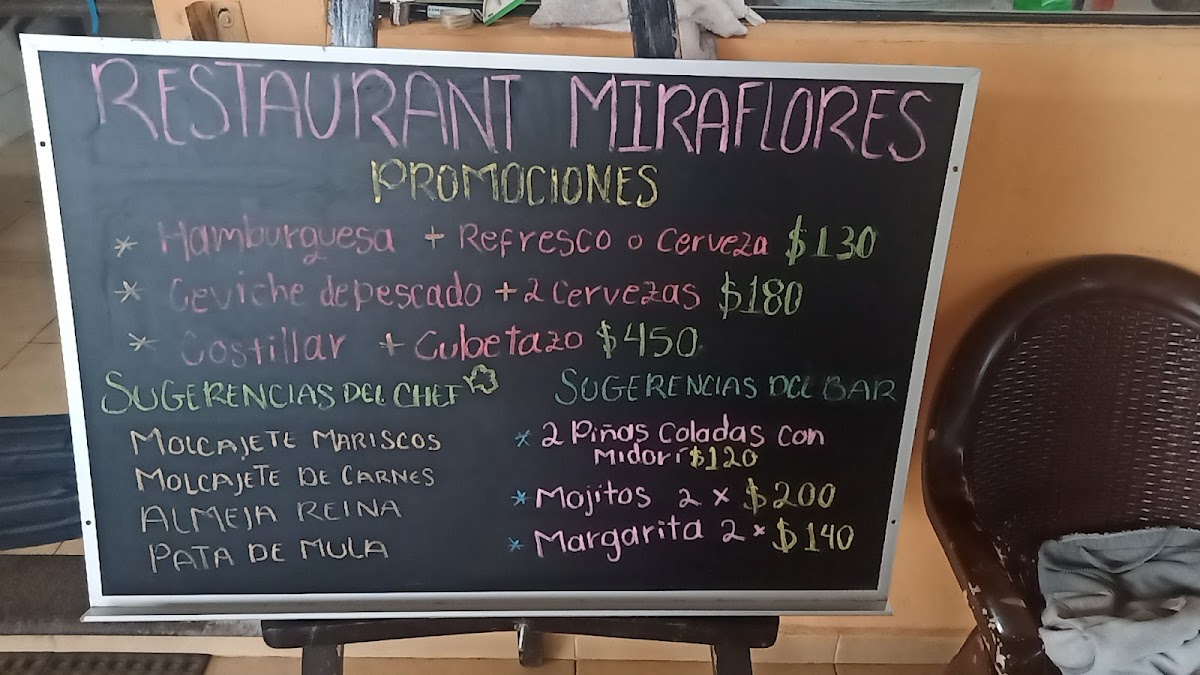 RESTAURANT MIRAFLORES
PROMOCIONES
* Hamburguesa + Refresco o Cerveza $130
* Ceviche de pescado + 2 Cervezas $180
* Costillar + Cubetazo $450
SUGERENCIAS DEL CHEF
MOLCAJETE MARISCOS
MOLCAJETE DE CARNES
ALMEJA REINA
PATA DE MULA
SUGERENCIAS DEL BAR
* 2 Piñas Coladas con
Midori $120
* Mojitos 2 x $200
* Margarita 2 x $140